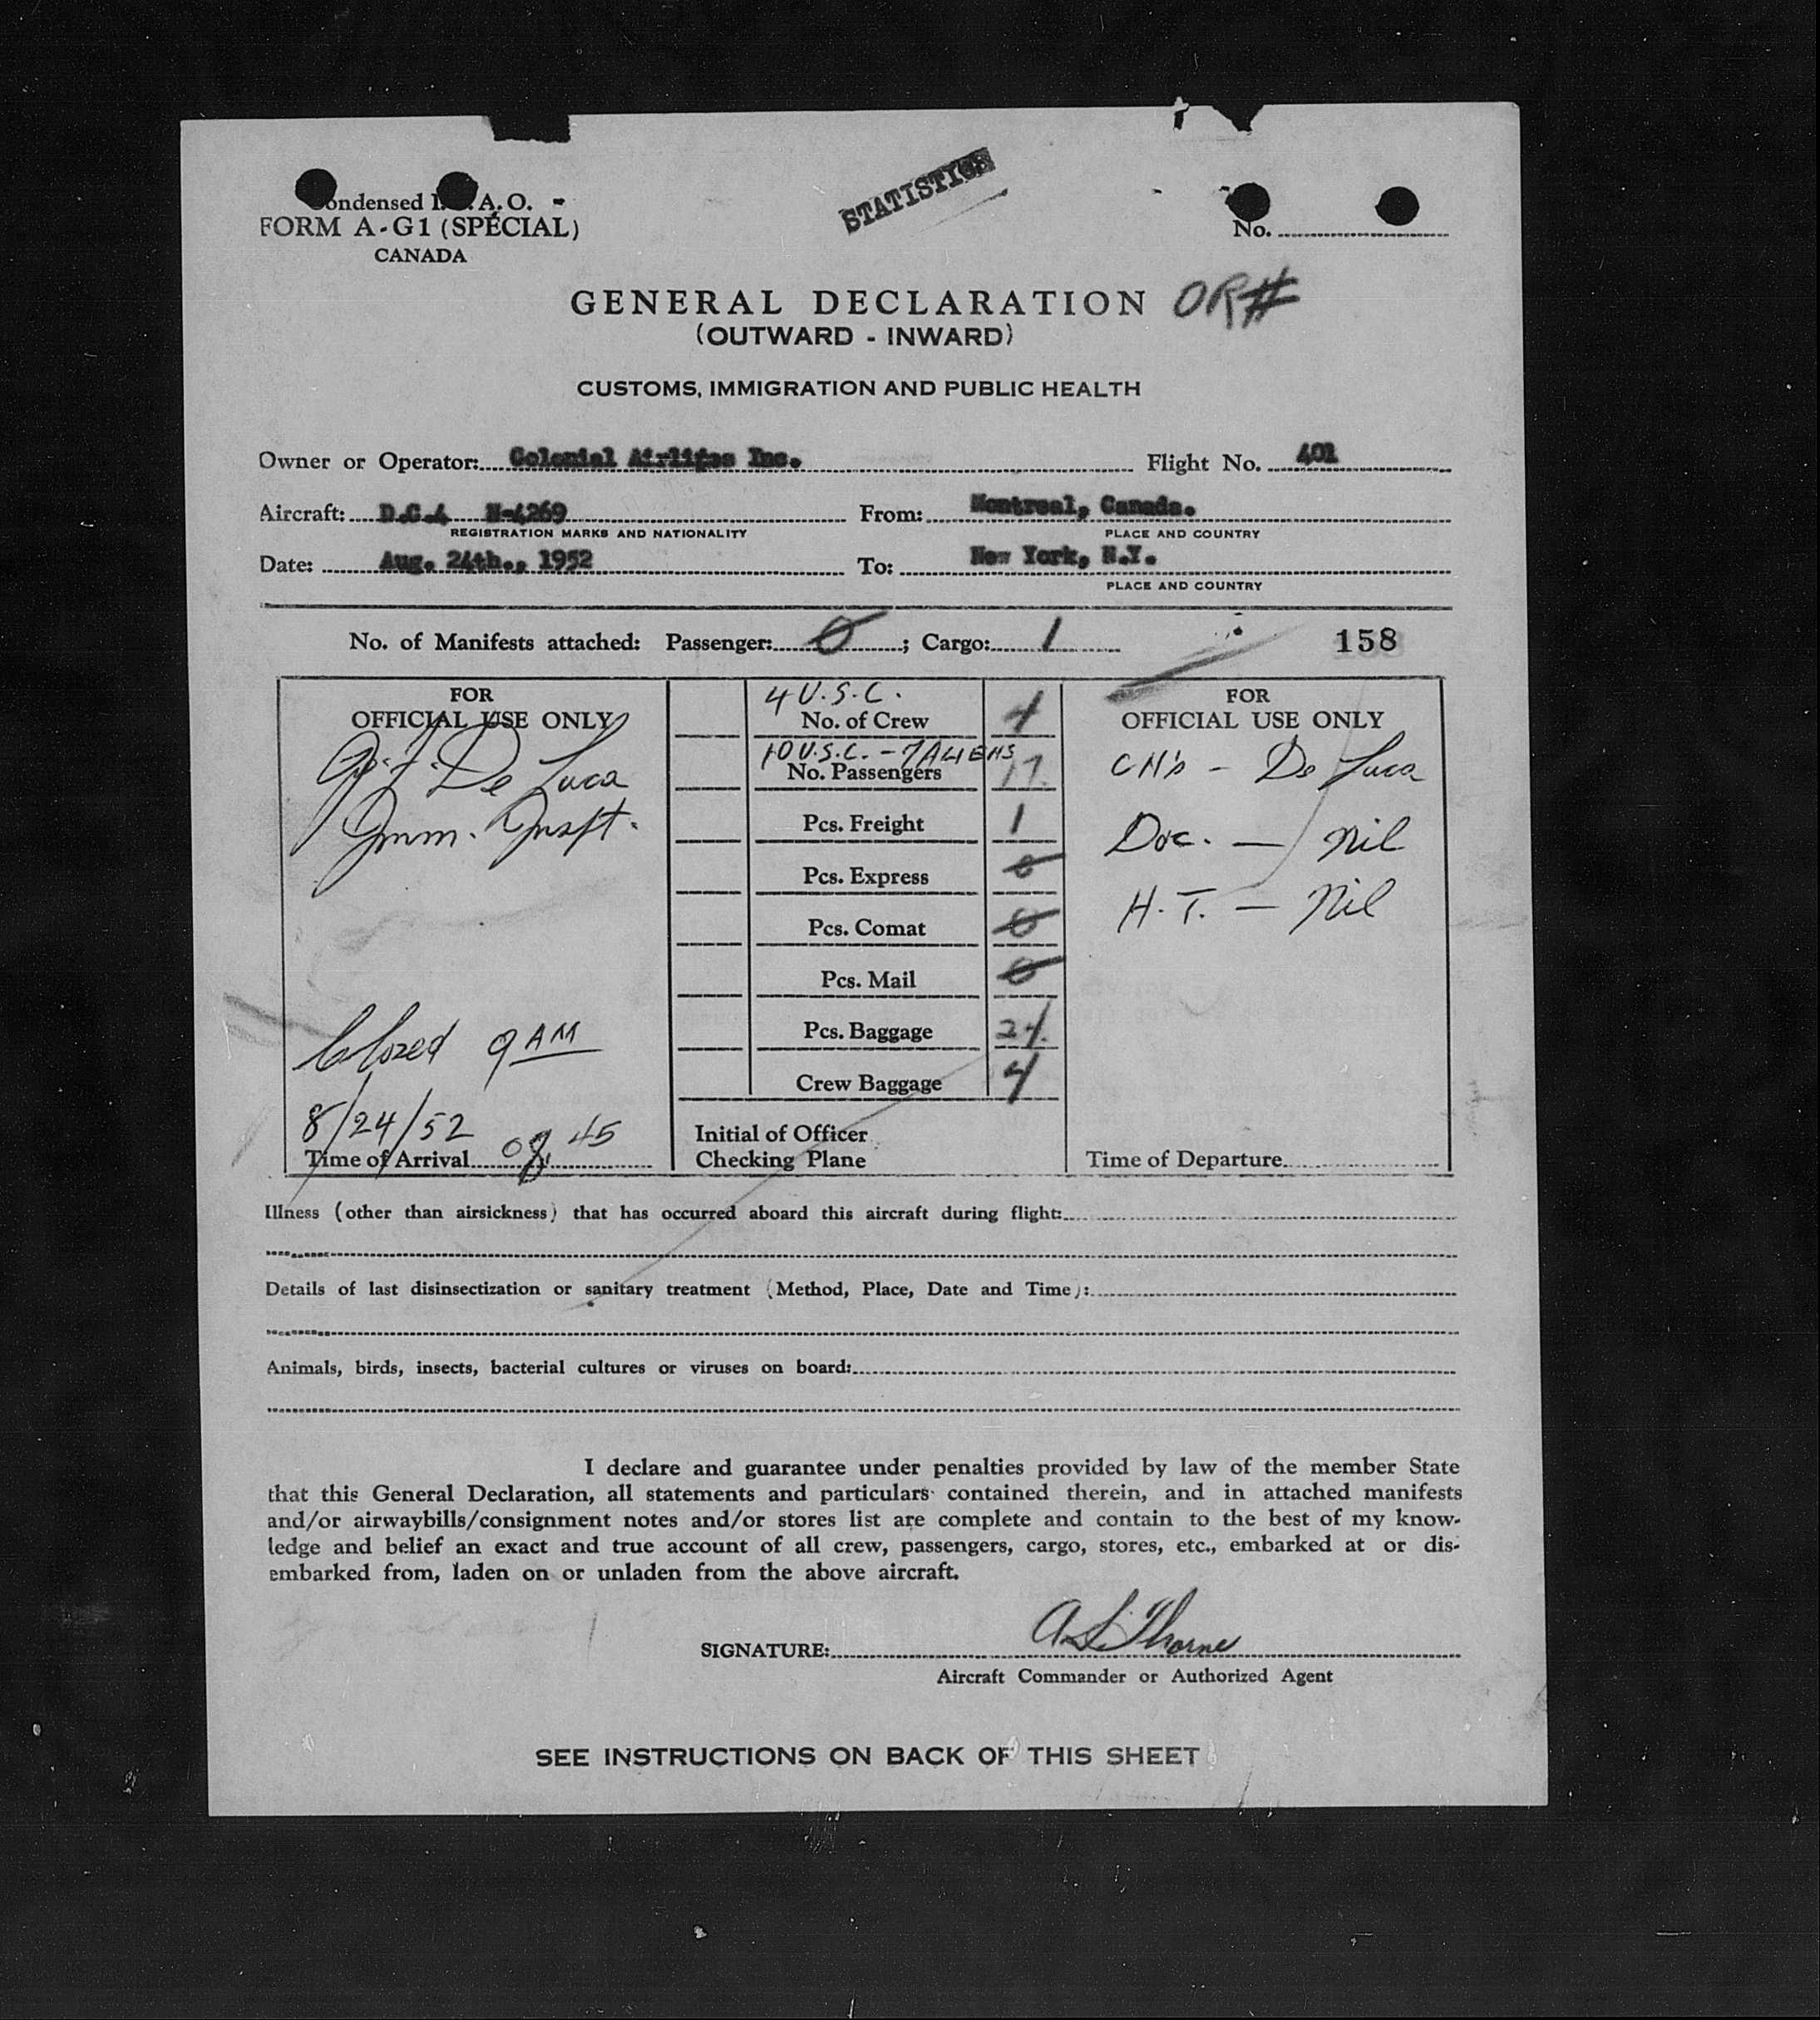 STATISTICS
Condensed I. A. O.
FORM A-G1 (SPECIAL)
CANADA
No.
GENERAL DECLARATION OR#
(OUTWARD - INWARD)
CUSTOMS, IMMIGRATION AND PUBLIC HEALTH
Owner or Operator: Colonial Airlines Inc. Flight No. 401
Aircraft: D.C.4 N-4269 From: Montreal, Canada.
REGISTRATION MARKS AND NATIONALITY PLACE AND COUNTRY
Date: Aug. 24th., 1952 To: New York, N.Y.
PLACE AND COUNTRY
No. of Manifests attached: Passenger: 0; Cargo: 1 158
FOR
OFFICIAL USE ONLY
De Luca
Imm. Inspt.
Closed 9 AM
8/24/52
Time of Arrival 08 45
4 U.S.C.
No. of Crew 4
10 U.S.C. - 7 ALIENS
No. Passengers 17
Pcs. Freight 1
Pcs. Express 0
Pcs. Comat 0
Pcs. Mail 0
Pcs. Baggage 24
Crew Baggage 4
Initial of Officer
Checking Plane
FOR
OFFICIAL USE ONLY
CH's - De Luca
Doc. - Nil
H.T. - Nil
Time of Departure
Illness (other than airsickness) that has occurred aboard this aircraft during flight:
Details of last disinsectization or sanitary treatment (Method, Place, Date and Time):
Animals, birds, insects, bacterial cultures or viruses on board:
I declare and guarantee under penalties provided by law of the member State
that this General Declaration, all statements and particulars contained therein, and in attached manifests
and/or airwaybills/consignment notes and/or stores list are complete and contain to the best of my know-
ledge and belief an exact and true account of all crew, passengers, cargo, stores, etc., embarked at or dis-
embarked from, laden on or unladen from the above aircraft.
SIGNATURE: A. L. Thorne
Aircraft Commander or Authorized Agent
SEE INSTRUCTIONS ON BACK OF THIS SHEET